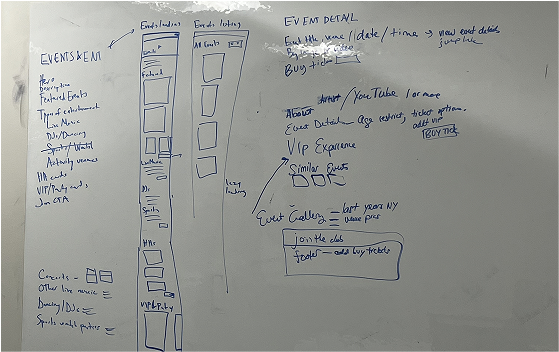 EVENTS & ENT
Hero
Description
Featured Events
Type of entertainment
Live Music
DJs/Dancing
Sports/Watch
Activity venues
HH cards
VIP/Party cards
Join CTA
Concerts -
Other live music
Dancing/DJs
Sports watch parties
Events landing
Featured
Live Music
DJs
Sports
HHs
VIP & Party
Events listing
All Events
lazy loading
EVENT DETAIL
Event title, venue/date/time → view event details
jump link
Buy ticket
About Artist/YouTube 1 or more
Event Details - Age restrict, ticket options,
add VIP
BUY TICK
VIP Experience
Similar Events
Event Gallery = last years NY
venue pics
join the club
footer - add buy tickets